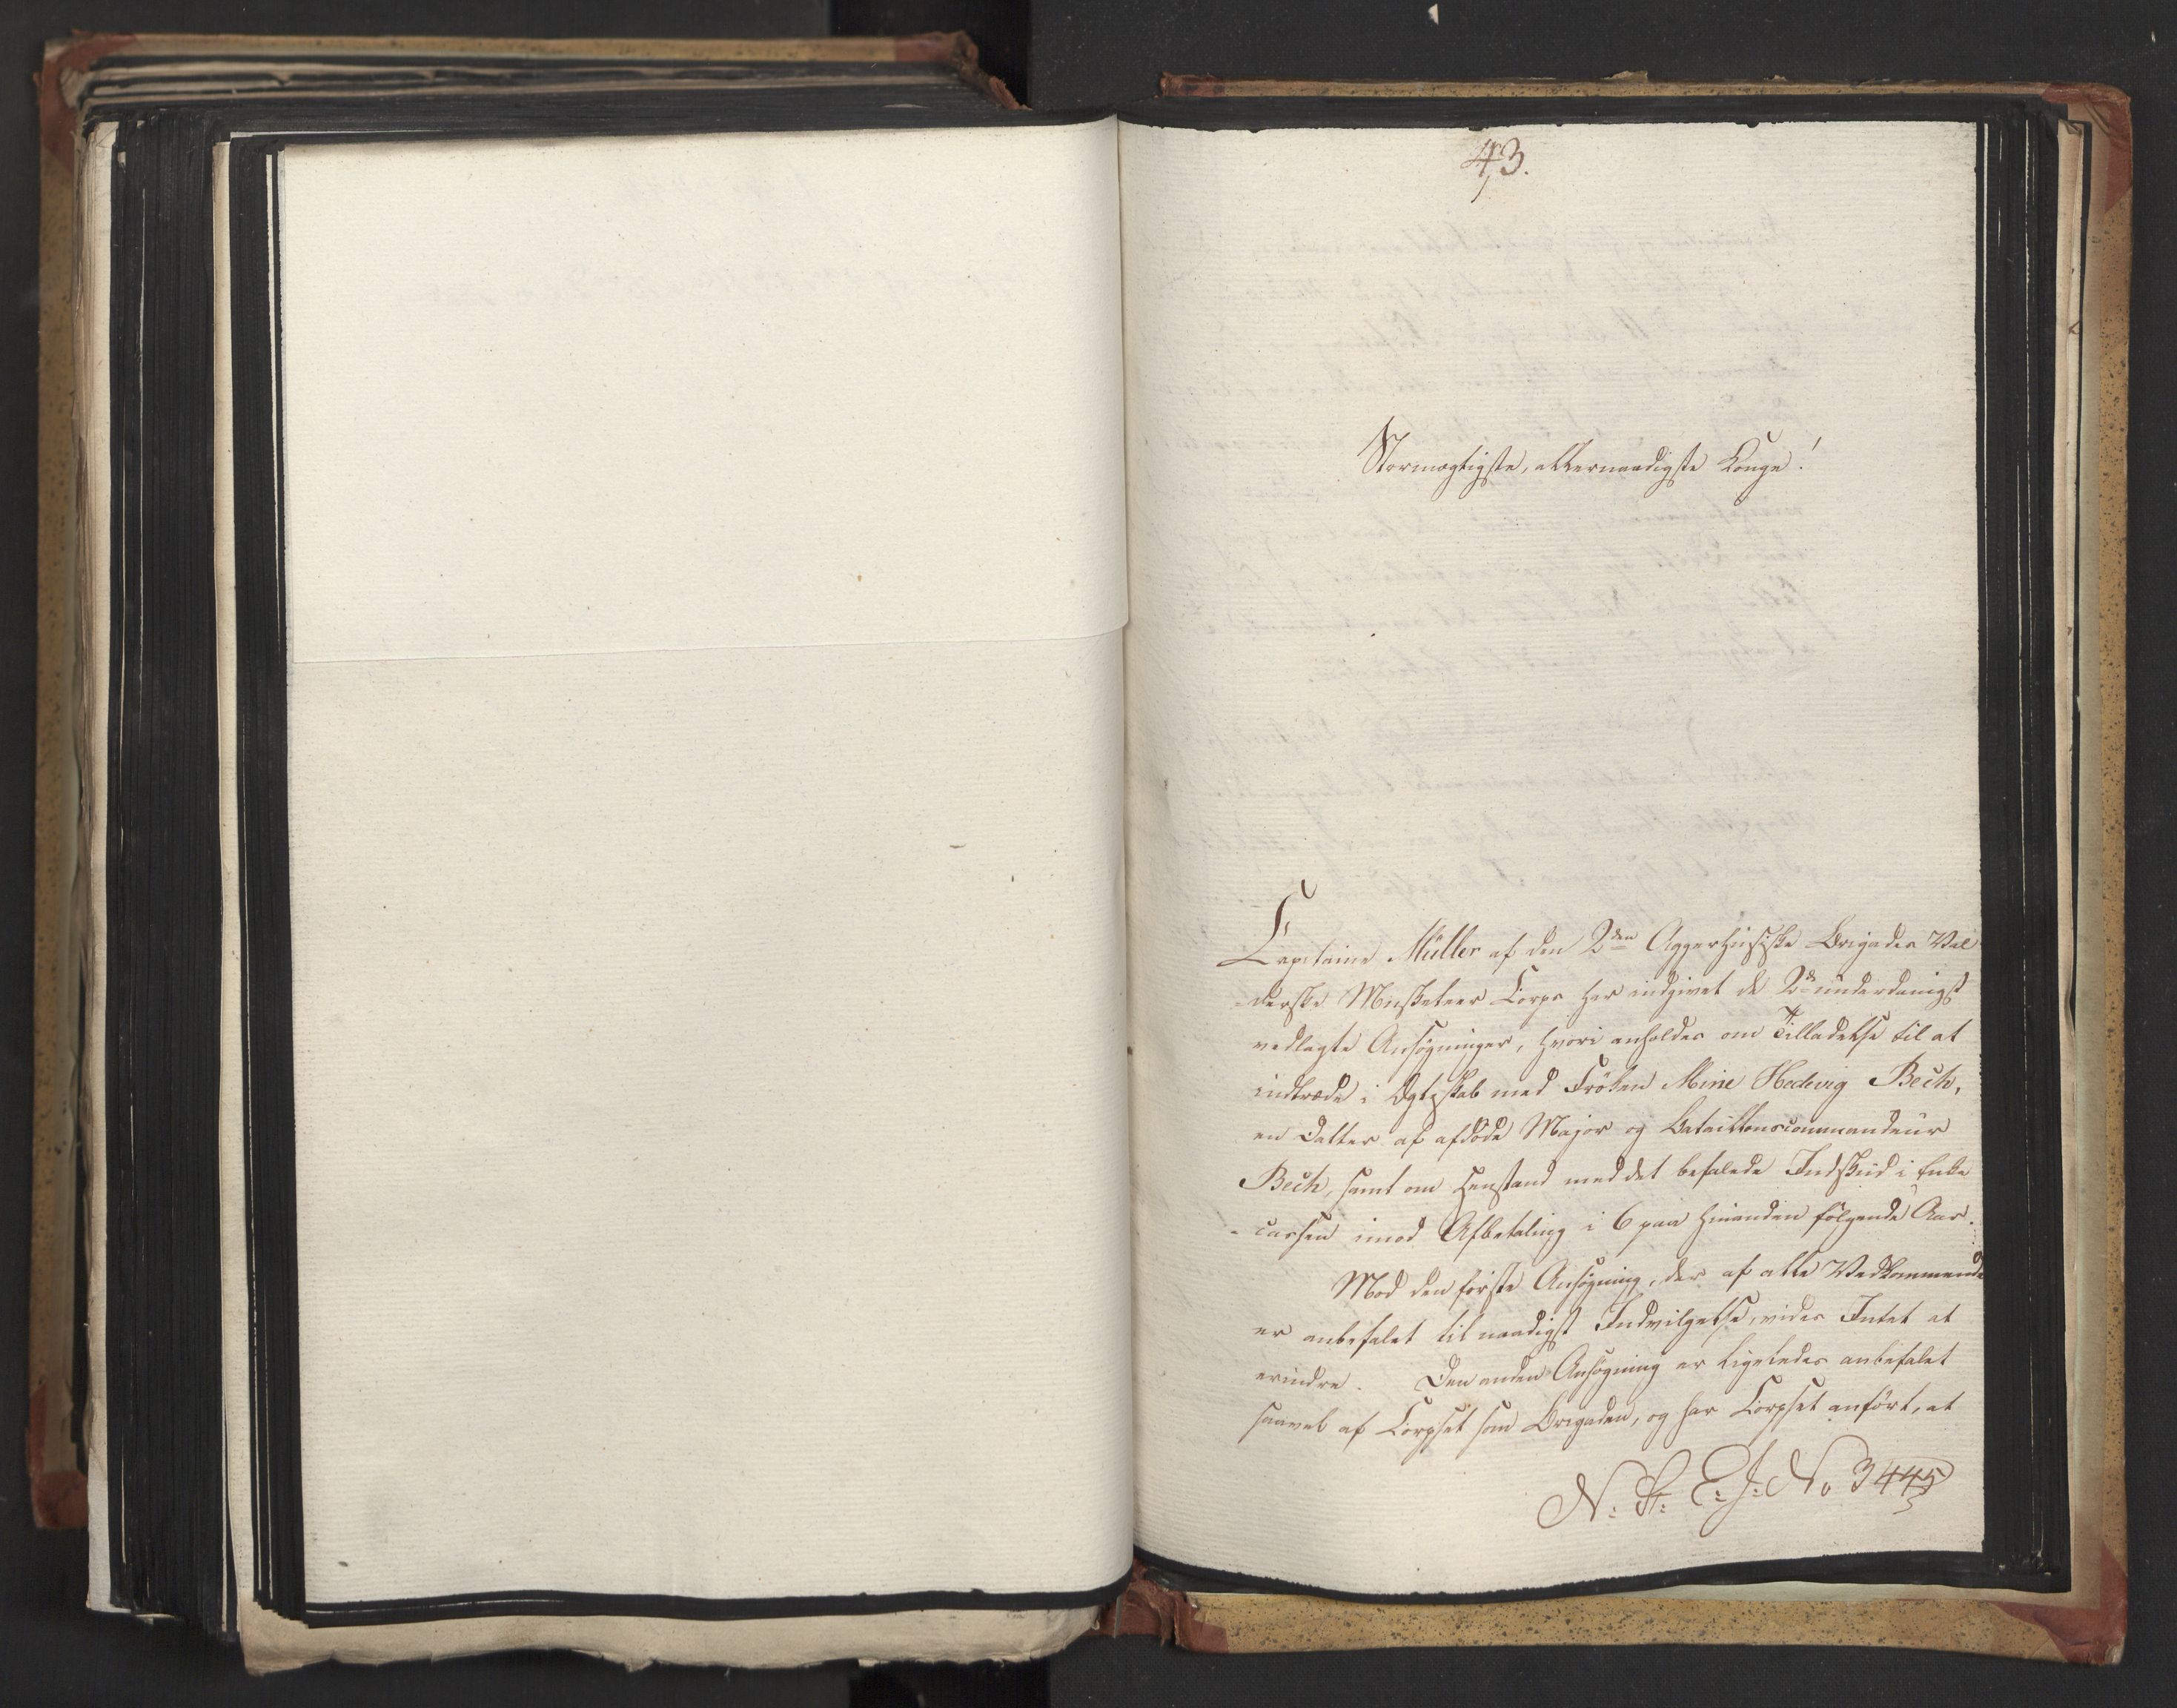 43.
Stormægtigste, allernaadigste Konge!
Capitaine Müller af den 2den Aggerhusiske Brigades Val
-derske Musketeer Corps har indgivet de 2de underdanigst
vedlagte Ansøgninger, hvori anholdes om Tilladelse til at
indtræde i Ægteskab med Frøken Mine Hedevig Bech,
en Datter af afdøde Major og Bataillonscommandeur
Bech, samt om Henstand med det befalede Indskud i Enke
-cassen imod Afbetaling i 6 paa hinanden følgende Aar.
Mod den første Ansøgning, der af alle Vedkommende
er anbefalet til naadigst Indvilgelse, vides Intet at
erindre. Den anden Ansøgning er ligeledes anbefalet
saavel af Corpset som Brigaden, og har Corpset anført, at
N: St: E: J: No 3445